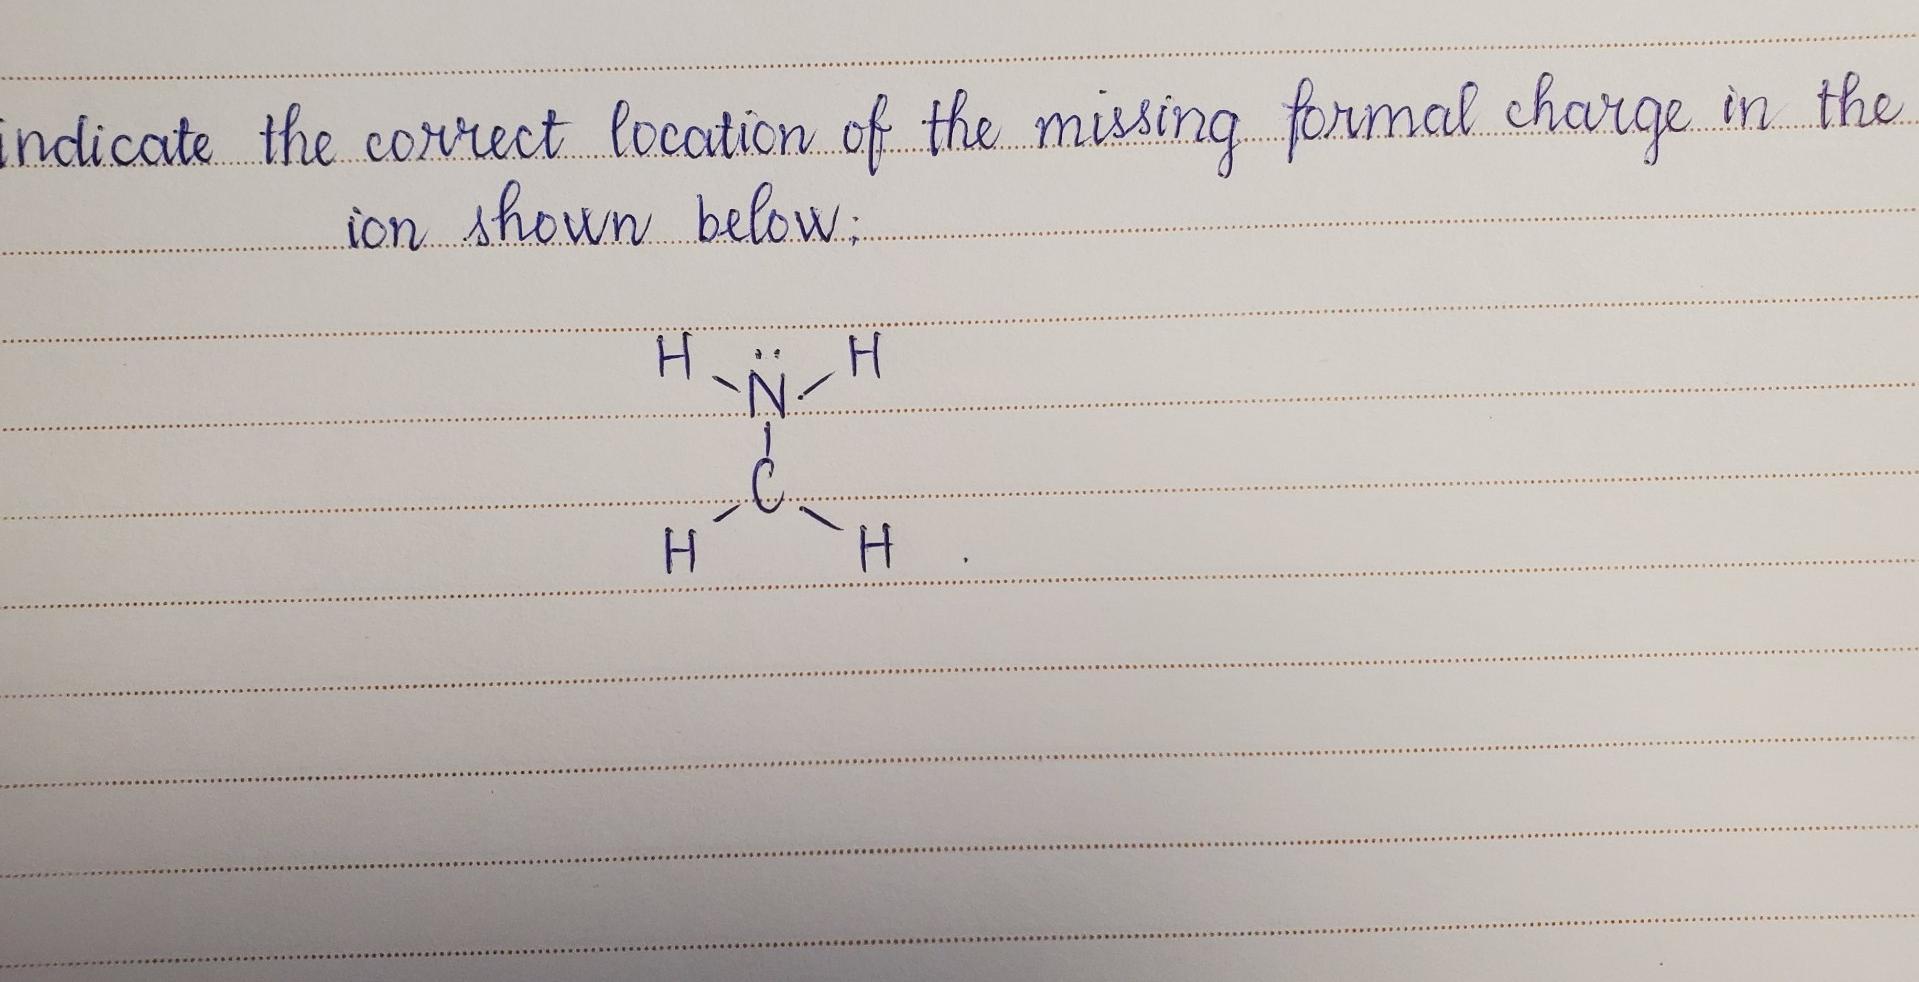 indicate the correct location of the missing formal charge in the
ion shown below:
H N H
C
H H